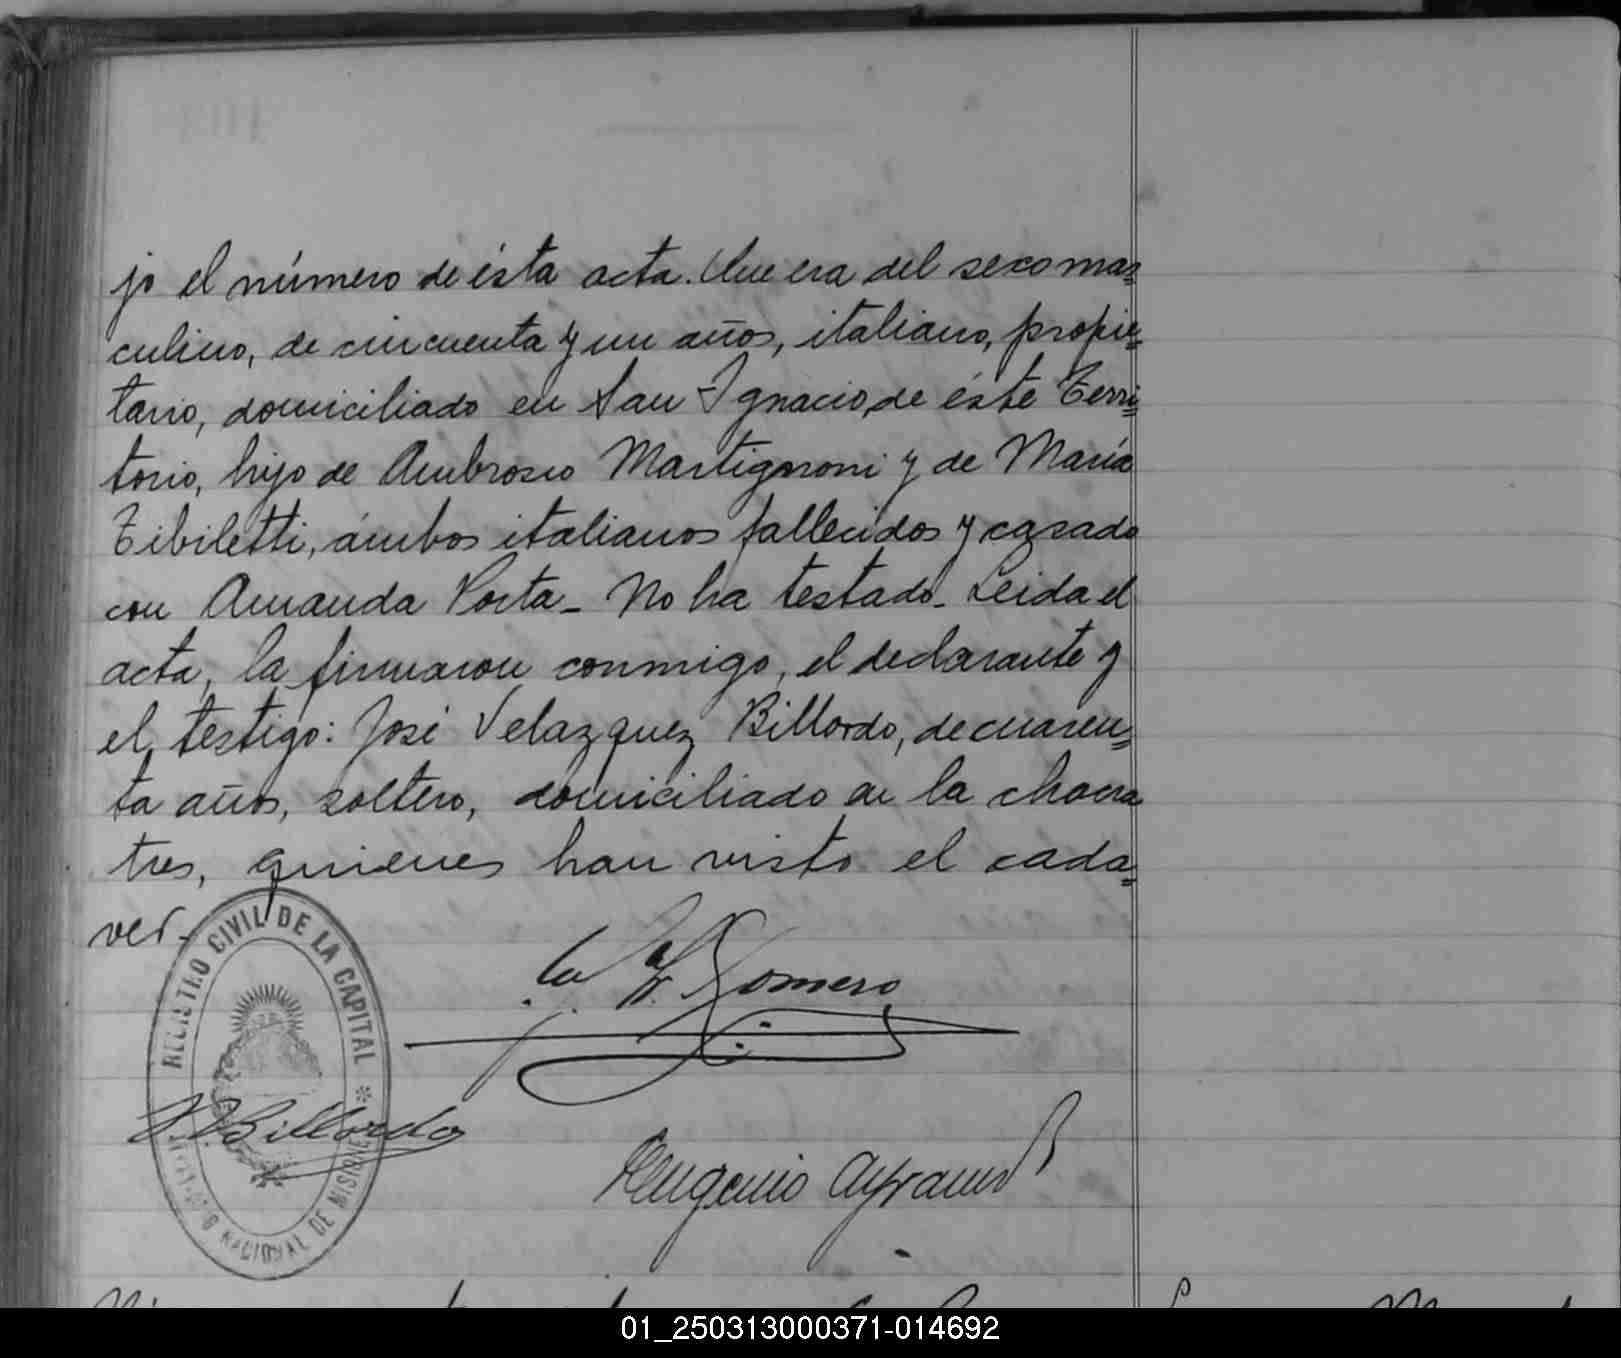 jo el número de ésta acta. Que era del sexo mas=
culino, de cincuenta y un años, italiano, propie=
tario, domiciliado en San Ignacio, de éste Terri=
torio, hijo de Ambrosio Martignoni y de María
Tibiletti, ámbos italianos fallecidos y casado
con Amanda Porta_ No ha testado_ Leida el
acta, la firmaron conmigo, el declarante y
el testigo: José Velazquez Billordo, de cuaren=
ta años, soltero, domiciliado en la chacra
tres, quienes han visto el cada=
ver_
REGISTRO CIVIL DE LA CAPITAL
NACIONAL DE MISIONES
Romero
Billordo
Eugenio
01_250313000371-014692